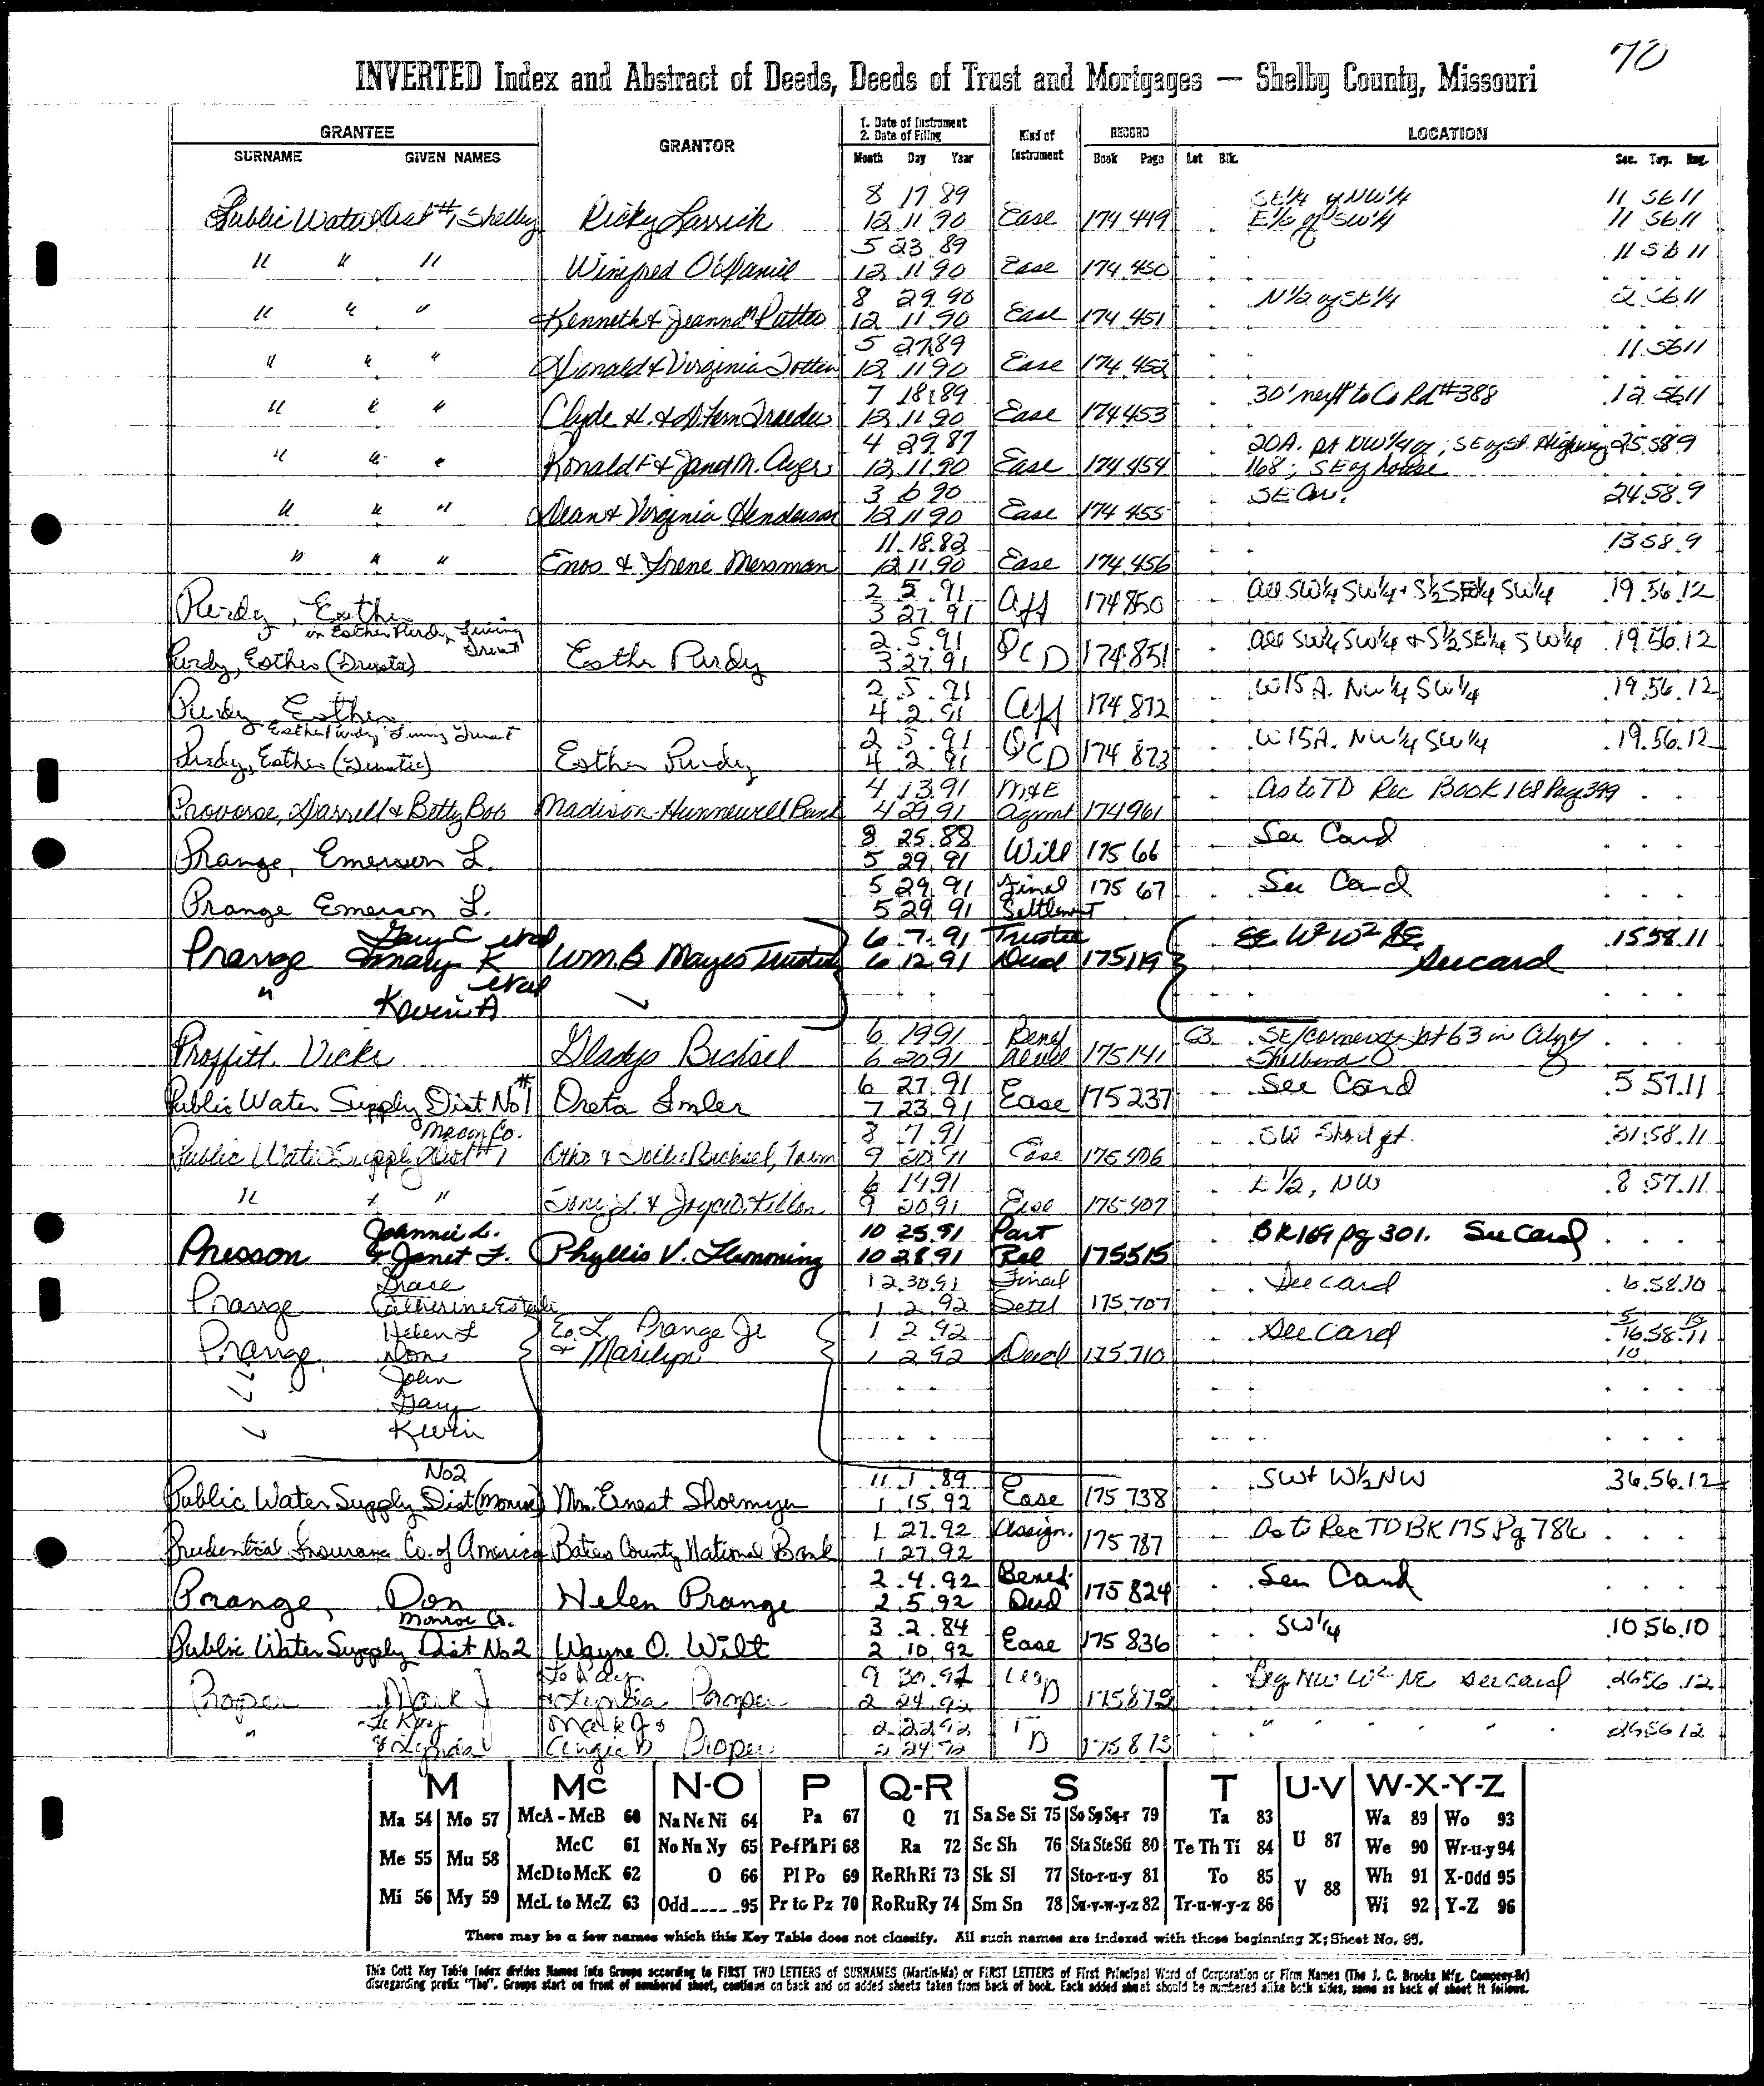 70
INVERTED Index and Abstract of Deeds, Deeds of Trust and Mortgages — Shelby County, Missouri
GRANTEE GRANTOR 1. Date of Instrument 2. Date of Filing Kind of Instrument RECORD LOCATION
SURNAME GIVEN NAMES Month Day Year Book Page Lot Blk. Sec. Twp. Rng.
8 17 89 SE¼ of NW¼ 11 56 11
Public Water Dist #1, Shelby Ricky 12 11 90 Ease 174 449 E½ of SW¼ 11 56 11
5 23 89 11 56 11
" " " Winifred O'Daniel 12 11 90 Ease 174 450
8 29 90 N½ of SE¼ 2 56 11
" " " Kenneth & Jeanna 12 11 90 Ease 174 451
5 27 89 11 56 11
" " " Donald & Virginia Totten 12 11 90 Ease 174 452
7 18 89 30' next to Co Rd #388 12 56 11
" " " Clyde H. & 12 11 90 Ease 174 453
4 29 87 20A. pt NW¼ of; SE of St. Highway 25 58 9
" " " Ronald F & Janet M. Ayers 12 11 90 Ease 174 454 168; SE of house
3 6 90 SE Cor. 24 58 9
" " " Dean & Virginia Henderson 12 11 90 Ease 174 455
11 18 82 13 58 9
" " " Enos & Irene Messman 12 11 90 Ease 174 456
2 5 91 All SW¼ SW¼ + S½ SE¼ SW¼ 19 56 12
Purdy, Esther 3 27 91 Aff 174 850
in Esther Purdy Living Trust 2 5 91 All SW¼ SW¼ & S½ SE¼ SW¼ 19 56 12
Purdy, Esther (Trustee) Esther Purdy 3 27 91 QCD 174 851
2 5 91 W15A. NW¼ SW¼ 19 56 12
Purdy Esther 4 2 91 Aff 174 872
Esther Purdy Living Trust 2 5 91 W15A. NW¼ SW¼ 19 56 12
Purdy, Esther (Trustee) Esther Purdy 4 2 91 QCD 174 873
4 13 91 M&E As to TD Rec Book 168 Page 399
Provorse, Darrell & Betty Bob Madison-Hunnewell Bank 4 29 91 Agmt 174 961
8 25 88 See Card
Prange, Emerson L. 5 29 91 Will 175 66
5 29 91 Final 175 67 See Card
Prange Emerson L. 5 29 91 Settlement
Gary C etal 6 7 91 Trustee W² W² SE 15 58 11
Prange K etal WM. B Mayes Trustee 6 12 91 Deed 175 119 See card
" Kevin A
6 19 91 Benef 63 SE/Corner of Lot 63 in City of
Proffitt, Vicki Gladys Bichsel 6 20 91 Deed 175 141 Shelbina
6 27 91 See Card 5 57 11
Public Water Supply Dist No #1 Oreta Imler 7 23 91 Ease 175 237
Macon Co. 8 7 91 31 58 11
Public Water Supply Dist #1 Otho & Bichsel, Farm 9 20 91 Ease 175 406
6 14 91 E ½, NW 8 57 11
" " " 9 20 91 Ease 175 407
Johnnie L. 10 25 91 Part BK 169 pg 301. See Card
Presson & Janet F. Phyllis V. Flemming 10 28 91 Rel 175 515
Grace 12 30 91 Final See card 6 58 10
Prange Catherine Estate 1 2 92 Settl 175 707
Helen L Ed. L Prange Jr 1 2 92 See Card 16 58 11
Prange, Don & Marilyn 1 2 92 Deed 175 710 10
John
Gary
Kevin
No 2 11 1 89 SW & W½ NW 36 56 12
Public Water Supply Dist (Monroe) Mrs. Ernest Shoemyer 1 15 92 Ease 175 738
1 27 92 Assign. As to Rec TD BK 175 Pg 786
Prudential Insurance Co. of America Bates County National Bank 1 27 92 175 787
2 4 92 Benef. See Card
Prange, Don Helen Prange 2 5 92 Deed 175 824
Monroe Co. 3 2 84 SW¼ 10 56 10
Public Water Supply Dist No 2 Wayne O. Wilt 2 10 92 Ease 175 836
Beg NW W² NE See card 26 56 12
Proper Mark J & Lyndia Proper 2 24 92 D 175 872
Mark J & 2 22 92 " " " " " 26 56 12
" & Lyndia Angie D Proper 2 24 92 D 175 873
M Mc N-O P Q-R S T U-V W-X-Y-Z
Ma 54 Mo 57 McA - McB 60 Na Ne Ni 64 Pa 67 Q 71 Sa Se Si 75 So Sp Sq-r 79 Ta 83 U 87 Wa 89 Wo 93
Me 55 Mu 58 McC 61 No Nu Ny 65 Pe-f Ph Pi 68 Ra 72 Sc Sh 76 Sta Ste Sti 80 Te Th Ti 84 V 88 We 90 Wr-u-y 94
McD to McK 62 O 66 Pl Po 69 Re Rh Ri 73 Sk Sl 77 Sto-r-u-y 81 To 85 Wh 91 X-Odd 95
Mi 56 My 59 McL to McZ 63 Odd-----95 Pr to Pz 70 Ro Ru Ry 74 Sm Sn 78 Su-v-w-y-z 82 Tr-u-w-y-z 86 Wi 92 Y-Z 96
There may be a few names which this Key Table does not classify. All such names are indexed with those beginning X; Sheet No. 95.
This Cott Key Table Index divides Names into Groups according to FIRST TWO LETTERS of SURNAMES (Martin-Ma) or FIRST LETTERS of First Principal Word of Corporation or Firm Names (The J. C. Brooks Mfg. Company-Br)
disregarding prefix "The". Groups start on front of numbered sheet, continue on back and on added sheets taken from back of book. Each added sheet should be numbered alike both sides, same as back of sheet it follows.